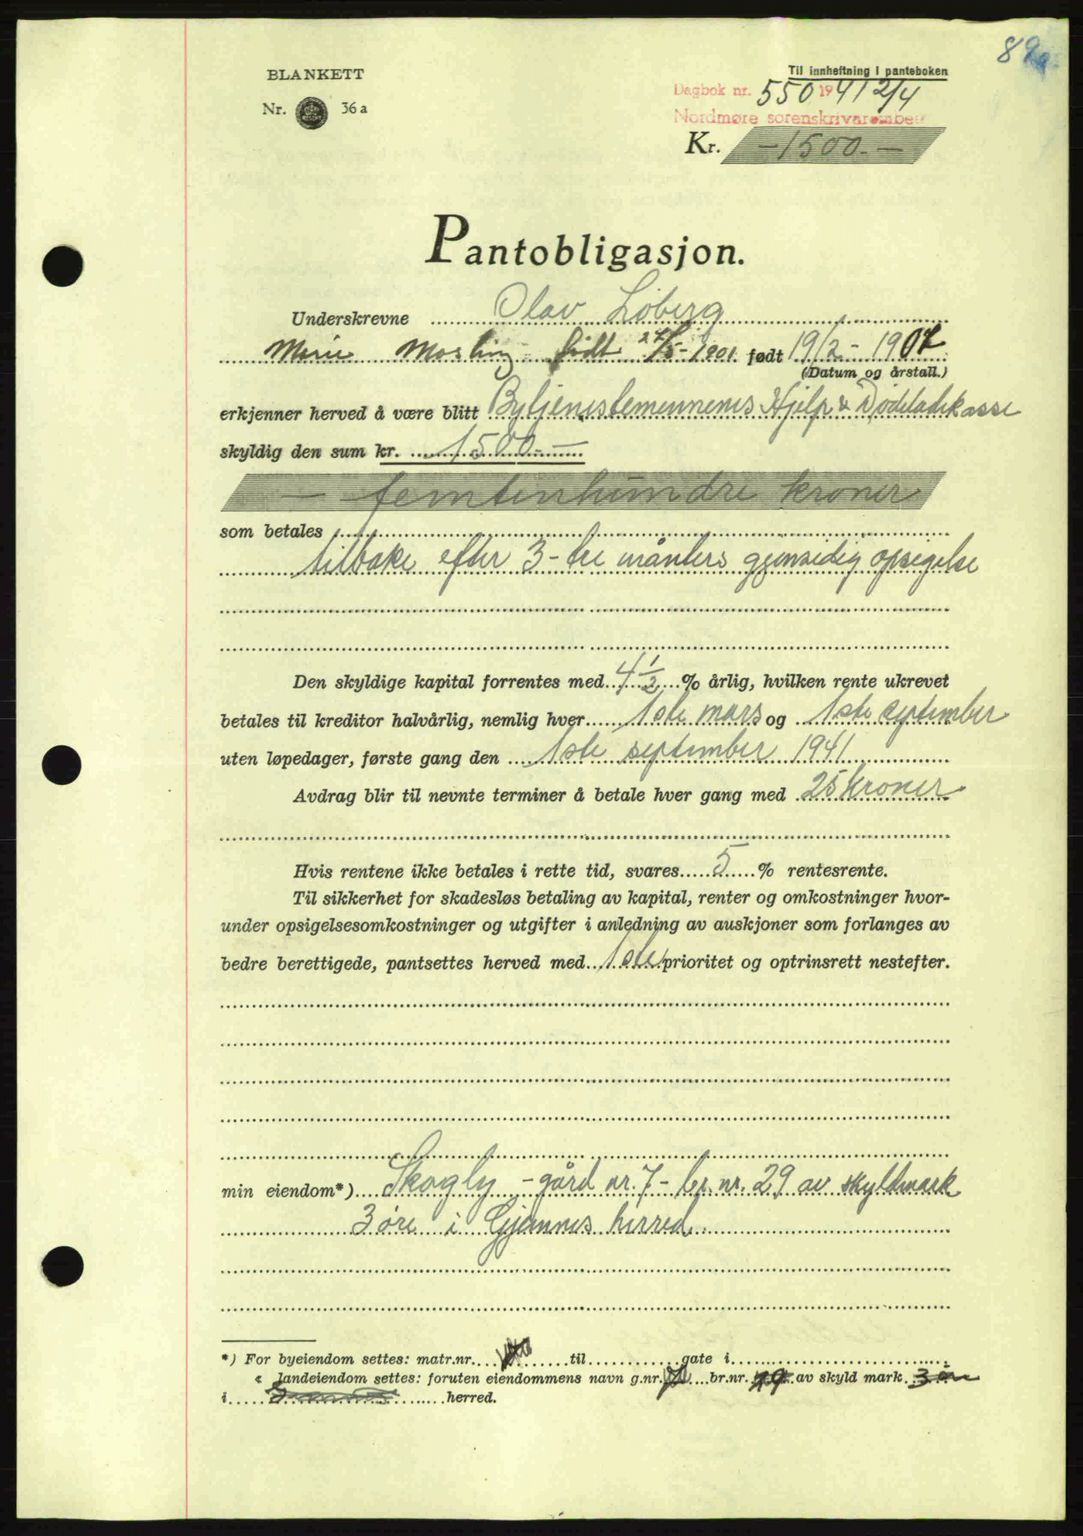 89
BLANKETT
Nr. 36 a
Til innheftning i panteboken
Dagbok nr. 550 1941 2/4
Nordmøre sorenskrivarembe
Kr. -1500.-
Pantobligasjon.
Underskrevne Olav Løberg
Marie født 27/5-1901 født 19/2-1907
(Datum og årstall.)
erkjenner herved å være blitt Bytjenestemennenes Hjelp & Dødeladekasse
skyldig den sum kr. 1500.-
- femtenhundre kroner
som betales
tilbake efter 3-tre måneders gjensidig opsigelse
Den skyldige kapital forrentes med 4 1/2 % årlig, hvilken rente ukrevet
betales til kreditor halvårlig, nemlig hver 1ste mars og 1ste september
uten løpedager, første gang den 1ste september 1941
Avdrag blir til nevnte terminer å betale hver gang med 25 kroner
Hvis rentene ikke betales i rette tid, svares 5 % rentesrente.
Til sikkerhet for skadesløs betaling av kapital, renter og omkostninger hvor-
under opsigelsesomkostninger og utgifter i anledning av auskjoner som forlanges av
bedre berettigede, pantsettes herved med 1ste prioritet og optrinsrett nestefter.
min eiendom*) Skogly - gård nr. 7 - br. nr. 29 av skyldmark
3 øre i Gjemnes herred.
*) For byeiendom settes: matr.nr. til gate i
« landeiendom settes: foruten eiendommens navn g.nr. 7 br.nr. 29 av skyld mark 3 øre
i herred.